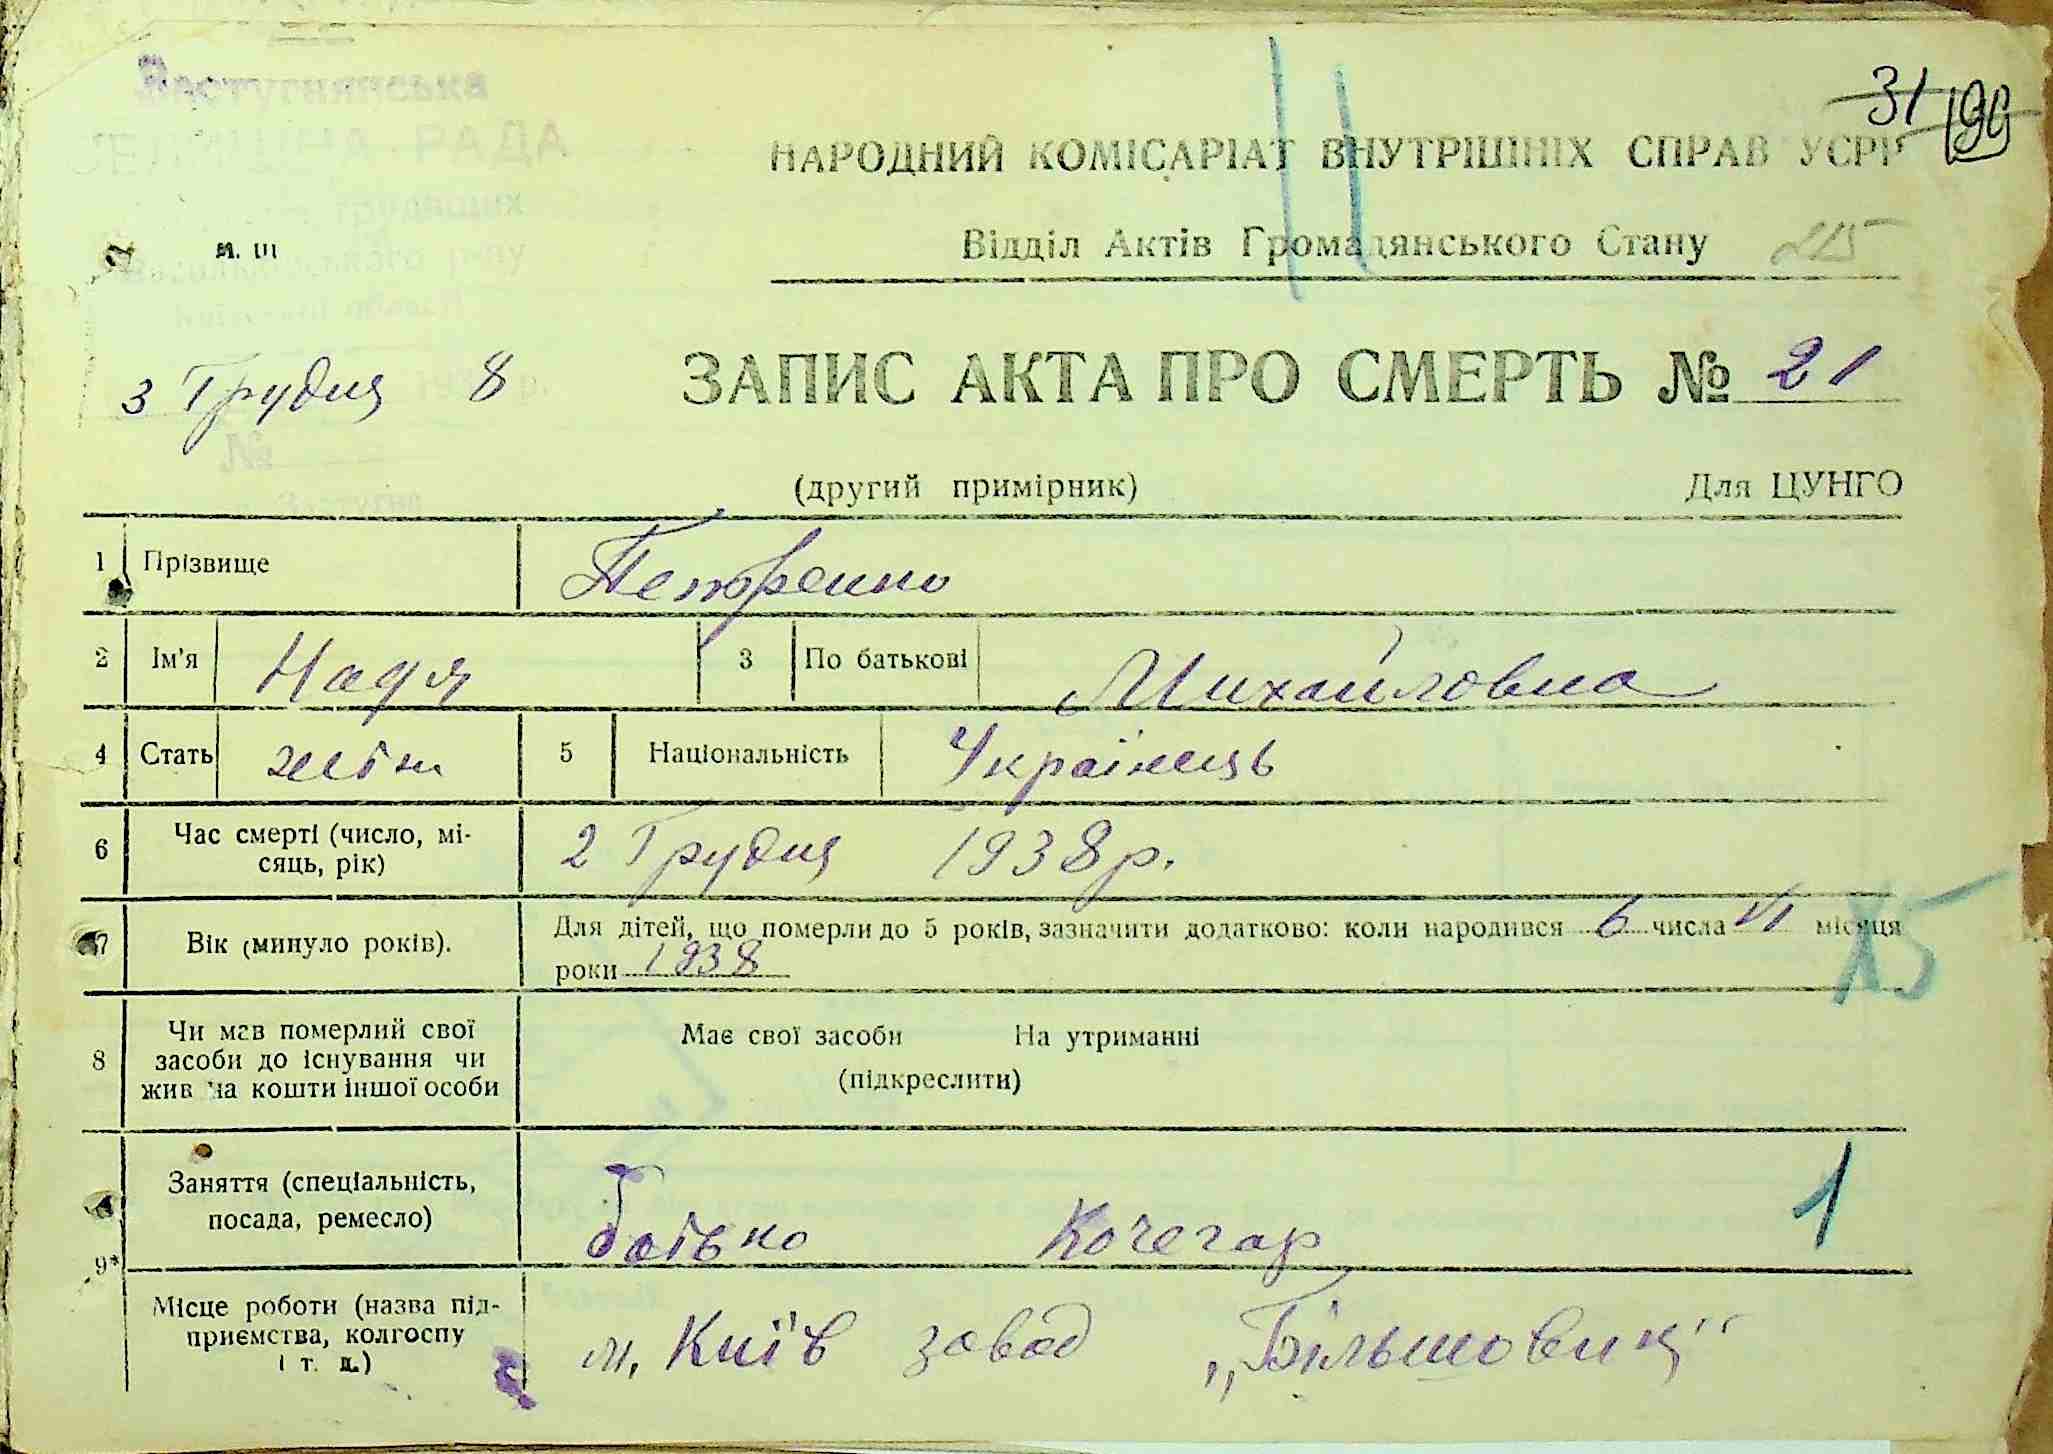 Застугнянська
СЕЛИЩНА РАДА
трудящих
Васильківського р-ну
Київської області
31 190
НАРОДНИЙ КОМІСАРІАТ ВНУТРІШНІХ СПРАВ УСРР
Відділ Актів Громадянського Стану 215
3 Грудня 8 р.
ЗАПИС АКТА ПРО СМЕРТЬ № 21
№
(другий примірник) Для ЦУНГО
1 Прізвище Петренко
2 Ім'я Надя 3 По батькові Михайловна
4 Стать жін 5 Національність Українець
6 Час смерті (число, мі-
сяць, рік) 2 Грудня 1938 р.
7 Вік (минуло років). Для дітей, що померли до 5 років, зазначити додатково: коли народився 6 числа VI місяця
роки 1938
15
8 Чи мав померлий свої
засоби до існування чи
жив на кошти іншої особи
Має свої засоби На утриманні
(підкреслити)
9* Заняття (спеціальність,
посада, ремесло) батько Кочегар 1
Місце роботи (назва під-
приємства, колгоспу
і т. д.) м. Київ завод „Більшовик"